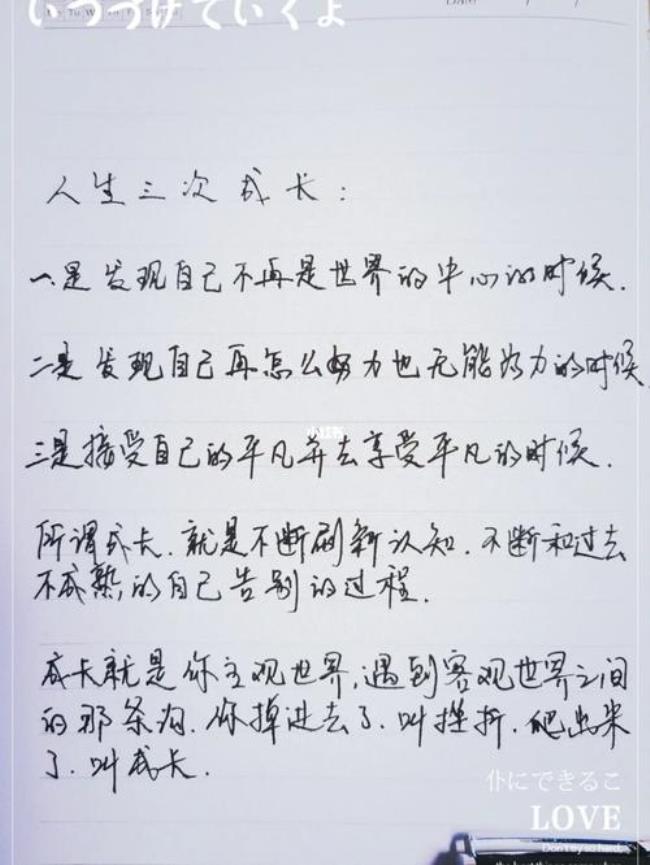 いつづけていくよ
人生三次成长：
一是发现自己不再是世界的中心的时候.
二是发现自己再怎么努力也无能为力的时候
三是接受自己的平凡并去享受平凡的时候.
小红书
所谓成长.就是不断刷新认知.不断和过去
不成熟的自己告别的过程.
成长就是你主观世界,遇到客观世界之间
的那条沟.你掉进去了.叫挫折.爬出来
了.叫成长.
仆にできるこ
LOVE